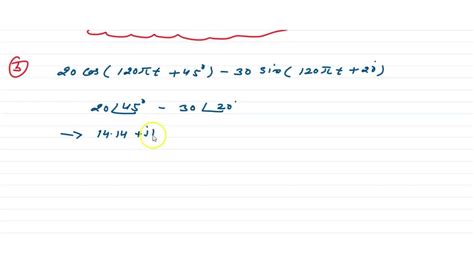 3
20 cos (120πt + 45°) - 30 sin (120πt + 20°)
20∠45° - 30∠20°
→ 14.14 + j1